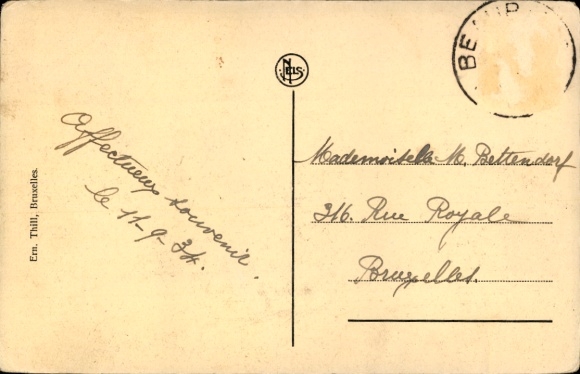 Affectueux souvenir.
le 11-9-34.
Mademoiselle M. Bettendorf
316. Rue Royale
Bruxelles.
Ern. Thill, Bruxelles.
NELS